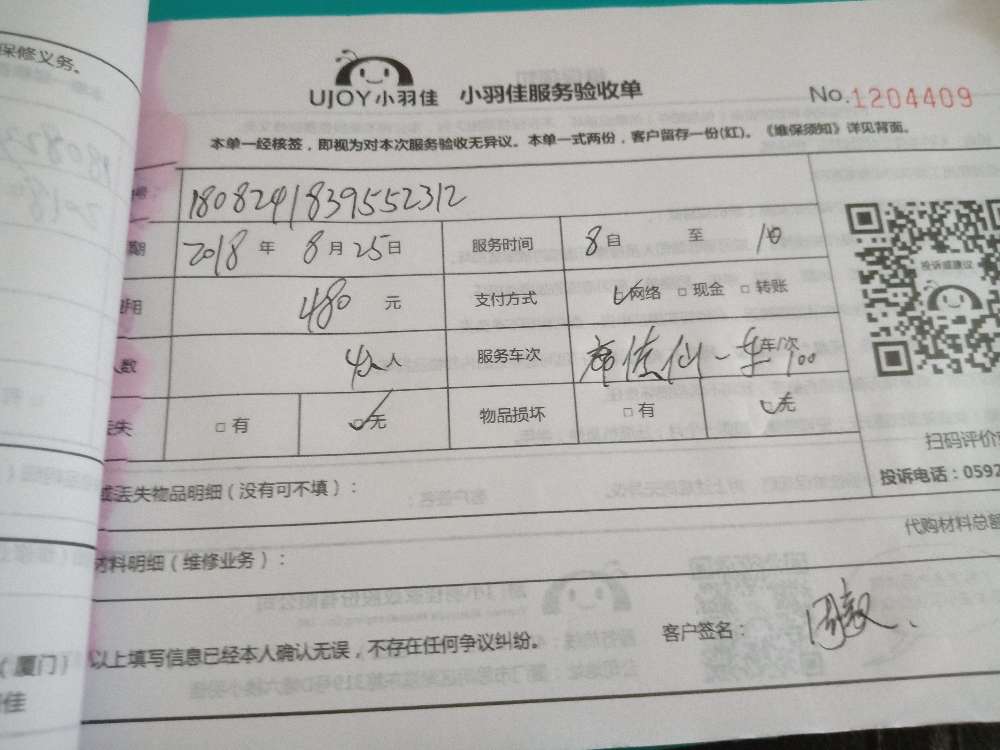 保修义务。
UJOY小羽佳 小羽佳服务验收单
No.1204409
本单一经核签，即视为对本次服务验收无异议。本单一式两份，客户留存一份(红)。《维保须知》详见背面。
号： 1808241839552312
期 2018 年 8 月 25 日 服务时间 8 至
用 480 元 支付方式 网络 □ 现金 □ 转账
人数 人 服务车次 一车 车/次
丢失 □ 有 无 物品损坏 □ 有 无
投诉或建议
扫码评价
投诉电话：0592
或丢失物品明细（没有可不填）：
代购材料总额
材料明细（维修业务）：
以上填写信息已经本人确认无误，不存在任何争议纠纷。 客户签名：
（厦门）
佳